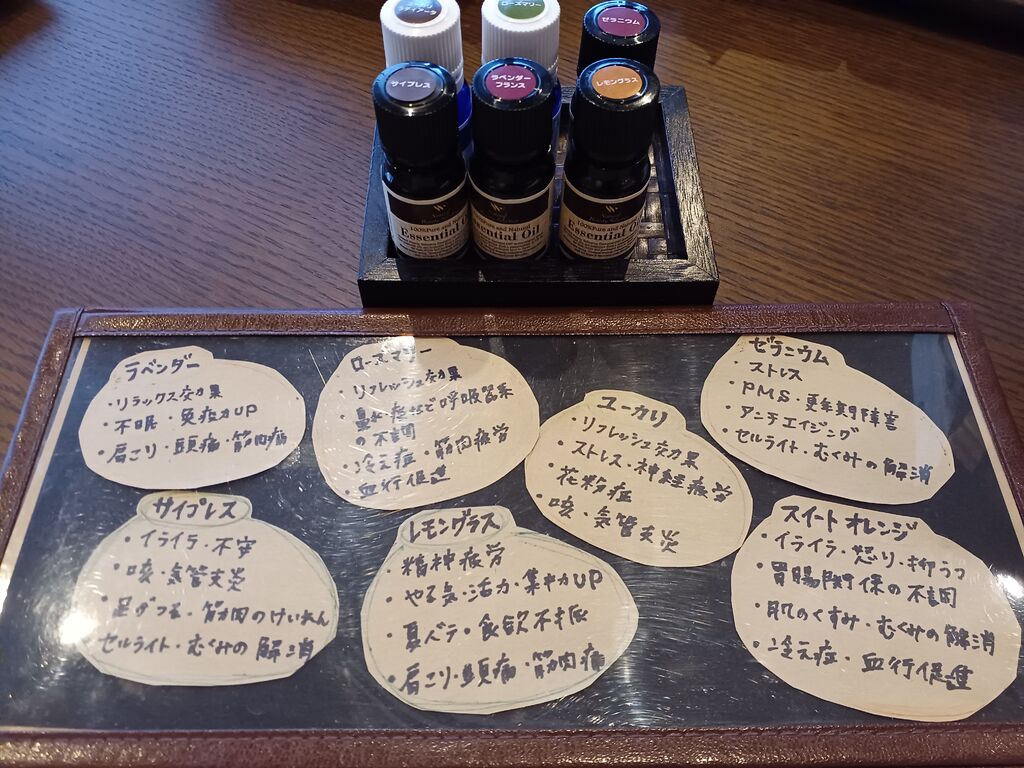 ローズマリー
ゼラニウム
サイプレス
ラベンダー
フランス
レモングラス
100%Pure and Natural
Essential Oil
100%Pure and Natural
Essential Oil
100%Pure and Natural
Essential Oil
ラベンダー
・リラックス効果
・不眠・免疫力UP
・肩こり・頭痛・筋肉痛
ローズマリー
・リフレッシュ効果
・鼻水・痰など呼吸器系
の不調
・冷え症・筋肉疲労
・血行促進
ユーカリ
・リフレッシュ効果
・ストレス・神経疲労
・花粉症
・咳・気管支炎
ゼラニウム
・ストレス
・PMS・更年期障害
・アンチエイジング
・セルライト・むくみの解消
サイプレス
・イライラ・不安
・咳・気管支炎
・足がつる・筋肉のけいれん
・セルライト・むくみの解消
レモングラス
・精神疲労
・やる気・活力・集中力UP
・夏バテ・食欲不振
・肩こり・頭痛・筋肉痛
スイートオレンジ
・イライラ・怒り・抑うつ
・胃腸関係の不調
・肌のくすみ・むくみの解消
・冷え症・血行促進